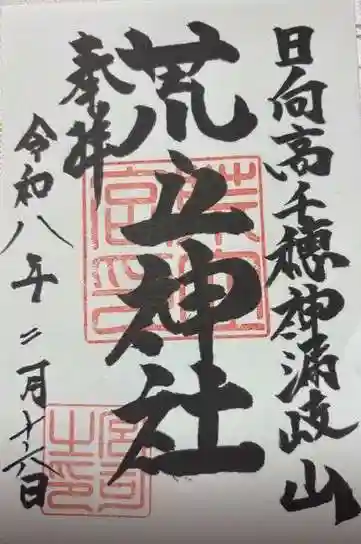 日向高千穂神漏岐山
荒立神社
奉拝
令和八年二月十六日